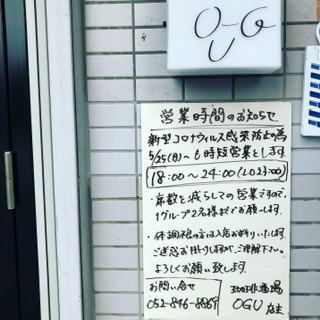 OUG
営業時間のお知らせ
新型コロナウィルス感染防止の為
5/25(月)~も時短営業とします。
18:00~24:00(LO23:00)
・席数を減らしての営業ですので、
1グループ2名様まででお願いします。
・体調不良の方は入店お断りいたします。
ご迷惑お掛けしますが、ご理解下さい。
よろしくお願い致します。
お問い合せ
052-846-8869
酒場
OGU 店主